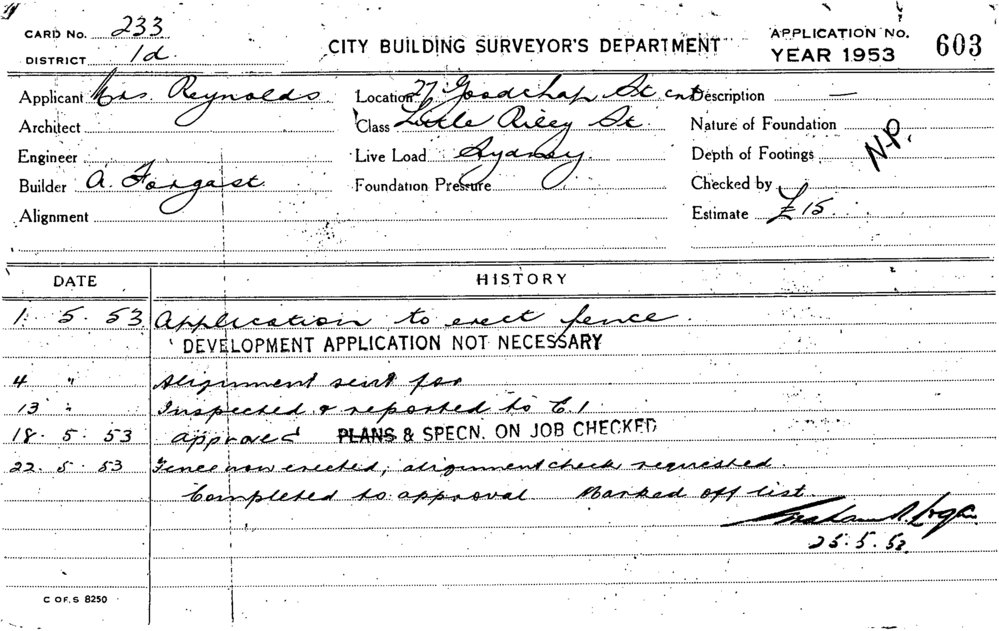 CARD No. 233
DISTRICT 1d.
CITY BUILDING SURVEYOR'S DEPARTMENT
APPLICATION No. 603
YEAR 1953
Applicant Mrs. Reynolds
Location 27 Goodchap St cnr
Description —
Architect
Class Little Riley St
Nature of Foundation
Engineer
Live Load Sydney
Depth of Footings
N.P.
Builder A. Forgast
Foundation Pressure
Checked by
Alignment
Estimate £15
DATE HISTORY
1. 5. 53 Application to erect fence.
DEVELOPMENT APPLICATION NOT NECESSARY
4 " Alignment sent for
13 " Inspected & reported to C.I.
18. 5. 53 approved PLANS & SPECN. ON JOB CHECKED
22. 5. 53 Fence now erected, alignment check requested.
Completed to approval Marked off list.
25. 5. 53
C OF. S 8250